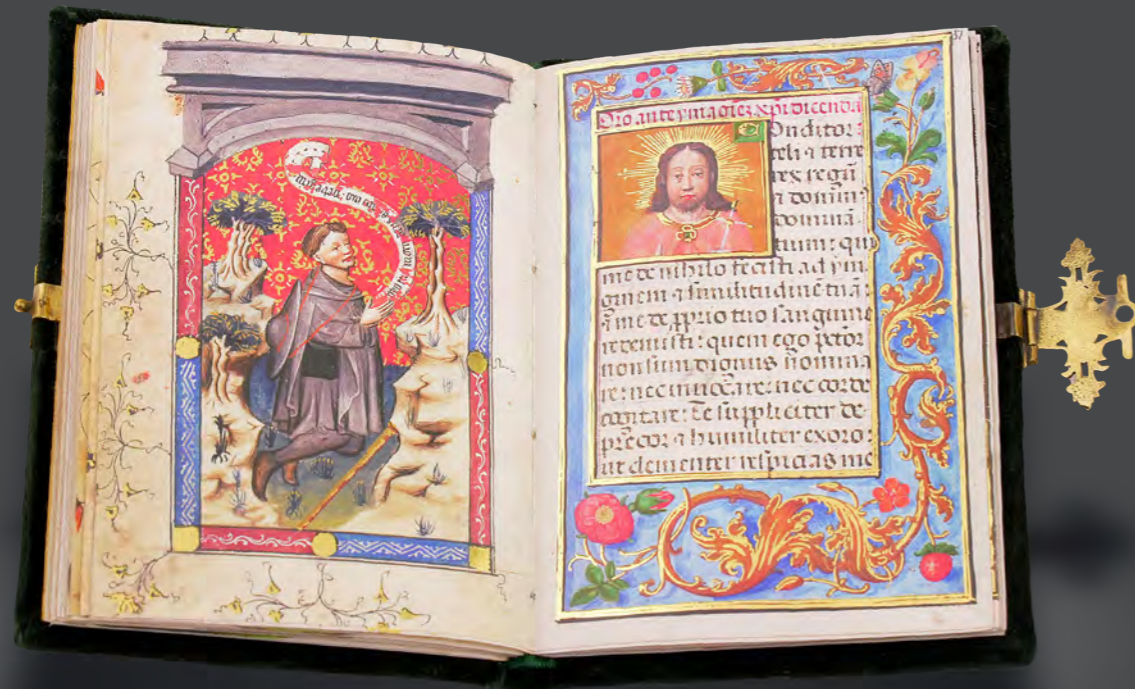 37
Oro ante ymagiēz xp̄i dicenda
Conditor:
celi ⁊ terre
rex regū
⁊ dominꝰ
dominā
tium: qui
me de nihilo fecisti ad ym
ginem ⁊ similitudinē tuā:
⁊ me de ꝓprio tuo sanguine
redemisti: quem ego pctōr
non sum dignus nomina
re: nec inuocare: nec corde
cogitare: te suppliciter de
precor ⁊ humiliter exoro:
ut clementer respicias me